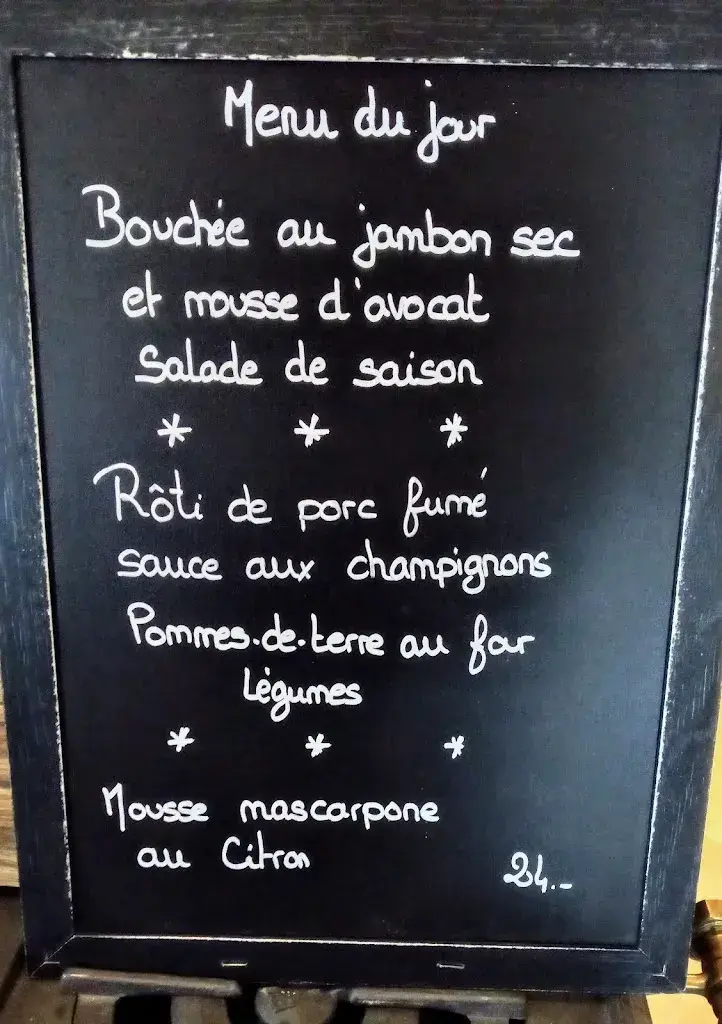 Menu du jour
Bouchée au jambon sec
et mousse d'avocat
Salade de saison
* * *
Rôti de porc fumé
sauce aux champignons
Pommes-de-terre au four
Légumes
* * *
Mousse mascarpone
au Citron
24.-